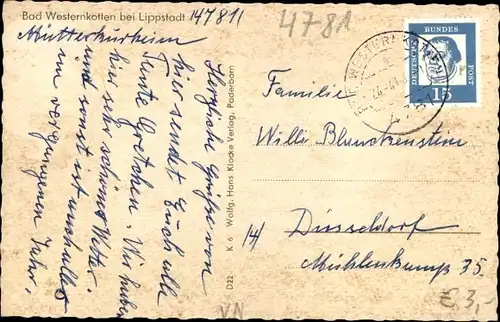 Bad Westernkotten bei Lippstadt 147811
4781
Mütterkurheim
Herzliche Grüße von
hier sendet Euch alle
Tante Gretchen. Wir haben
hier sehr schönes Wetter
und sonst ist auch alles
im vergangenen Jahr.
D22 K 6 Wolfg. Hans Klocke Verlag, Paderborn
DEUTSCHE BUNDES POST
15
Familie
Willi Blanckenstein
14/ Düsseldorf
Mühlenkamp 35.
VN
€ 3,-